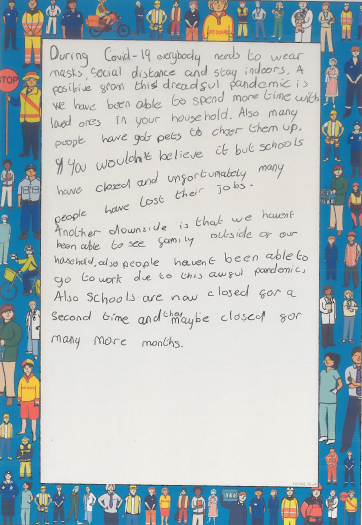 During Covid-19 everybody needs to wear
masks, Social distance and stay indoors. A
positive from this dreadful pandemic is
we have been able to spend more time with
loved ones in your household. Also many
people have gots pets to cheer them up.
You wouldn't believe it but schools
have closed and unfortunately many
people have lost their jobs.
Another downside is that we havent
been able to see family outside of our
household, also people havent been able to
go to work due to this awful pandemic,
Also Schools are now closed for a
second time and they maybe closed for
many more months.
STOP